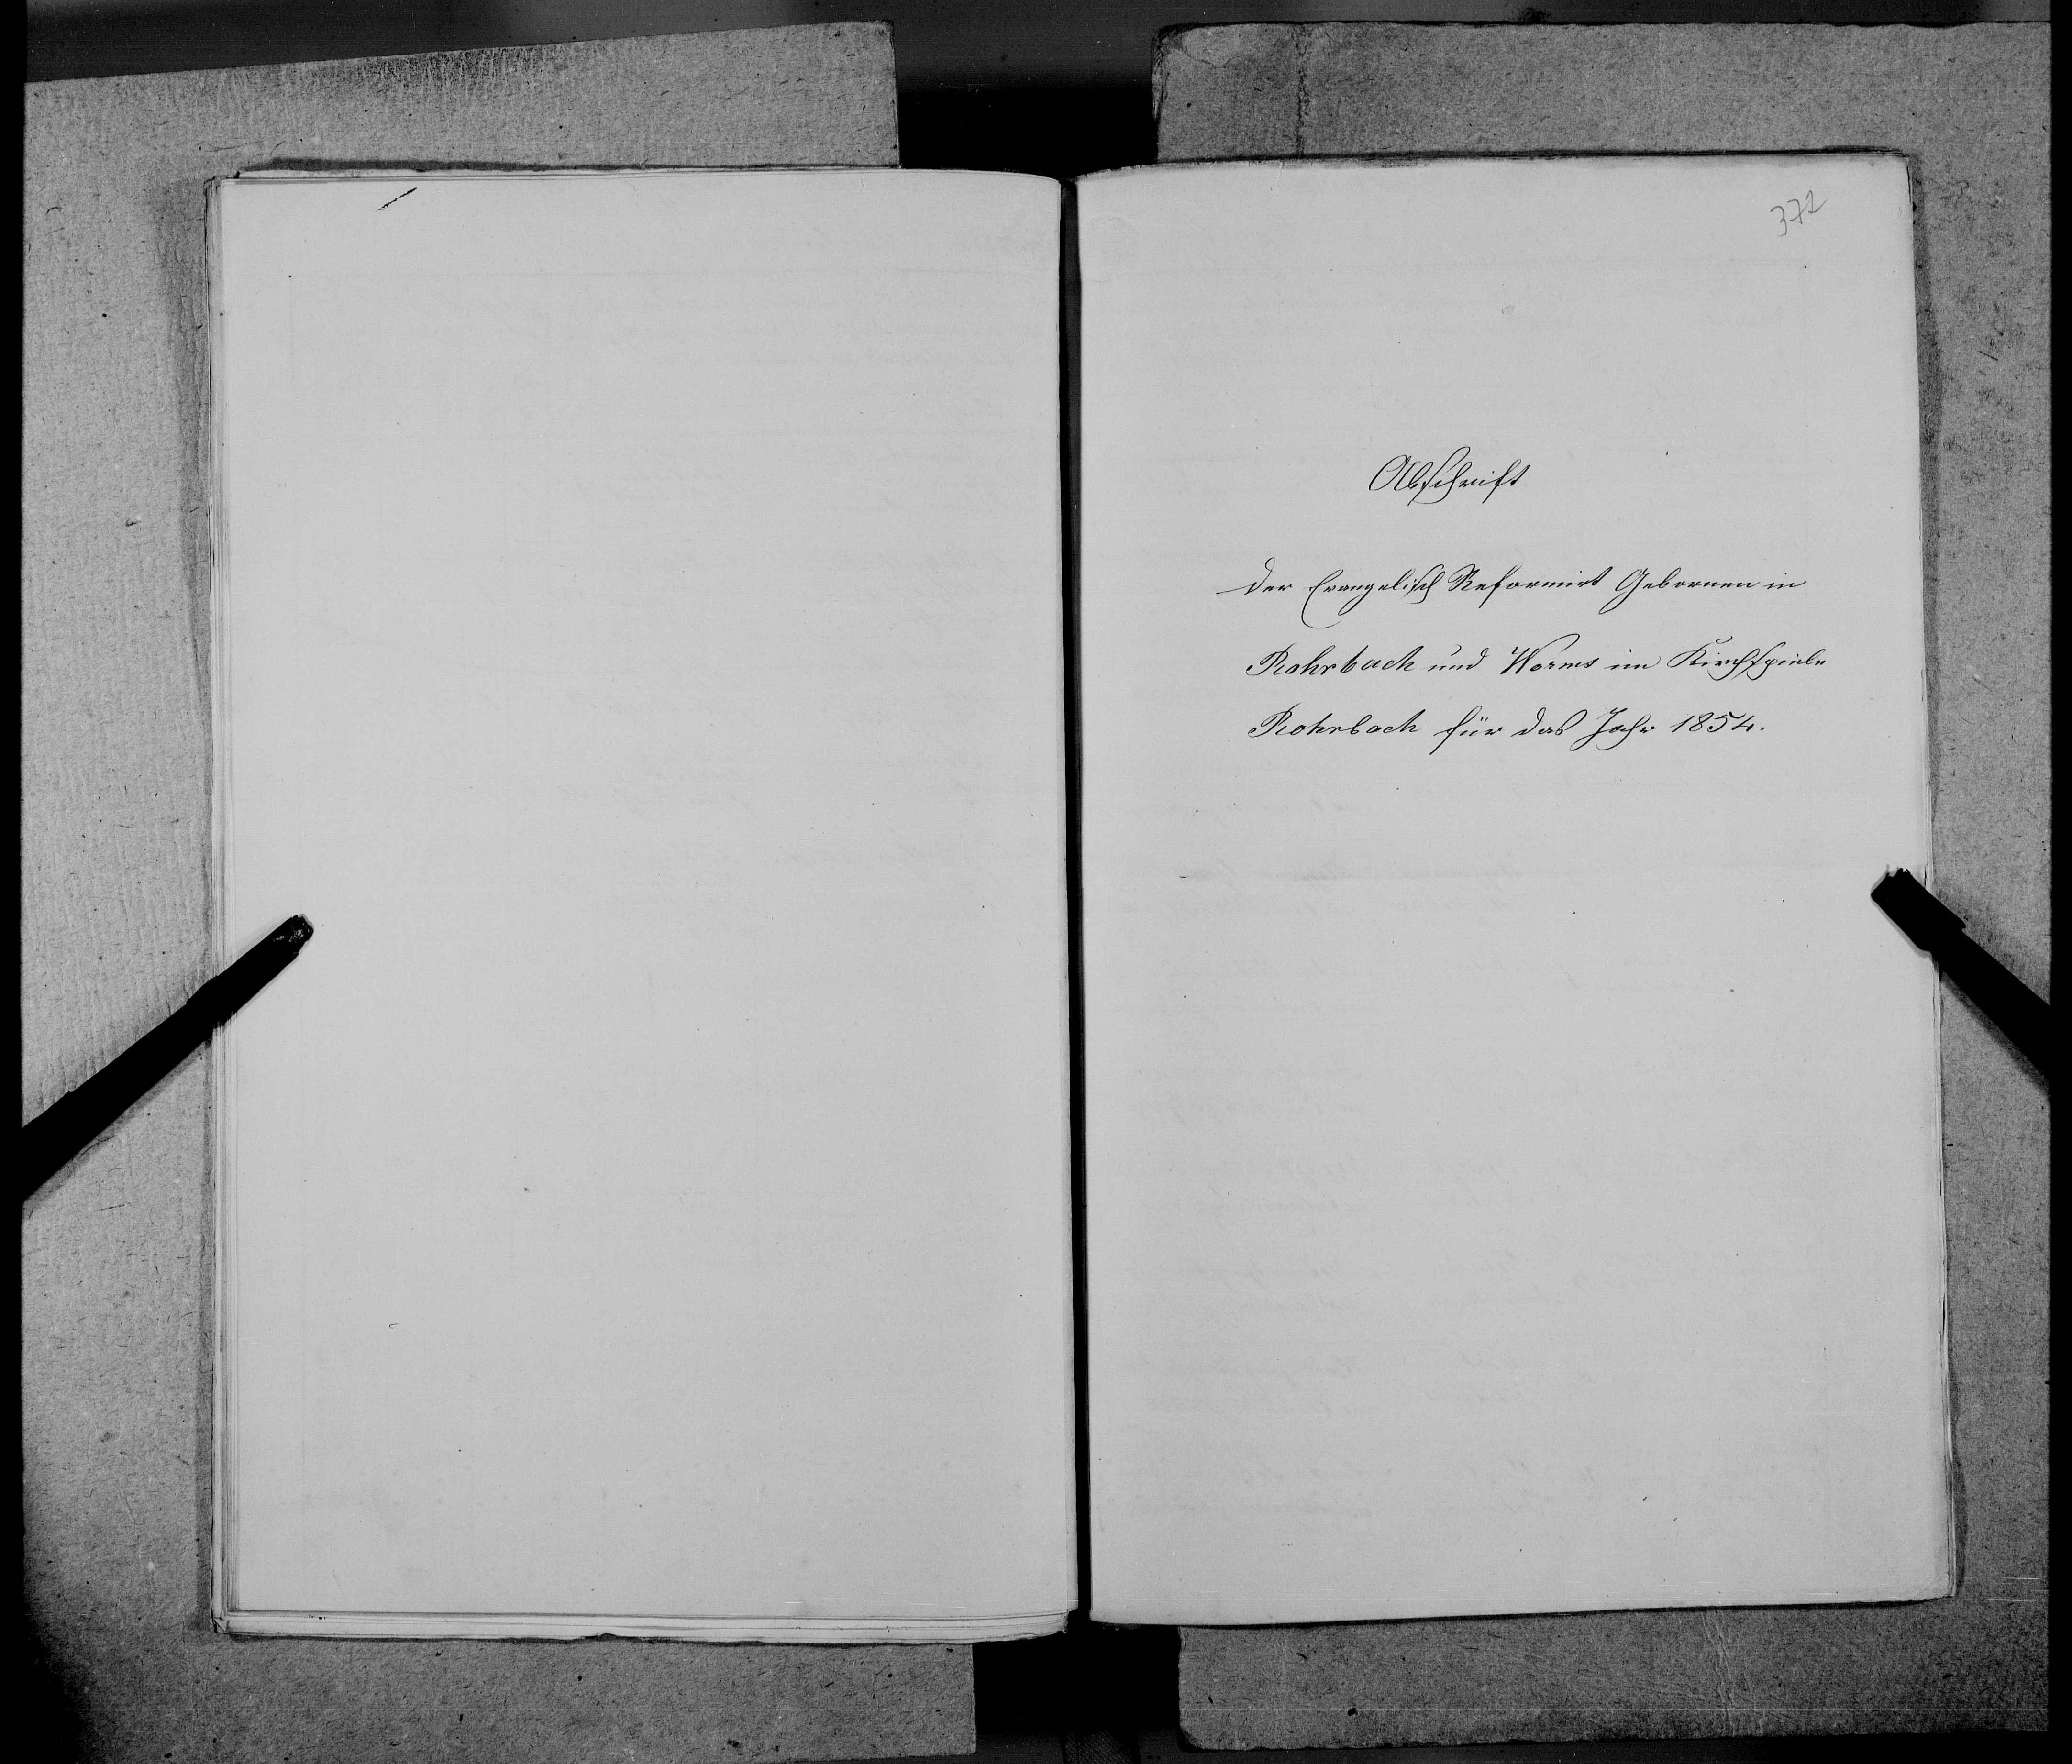 372
Abschrift
der Evangelisch Reformirt Gebornen in
Rohrbach und Worms im Kirchspiele
Rohrbach für das Jahr 1854.